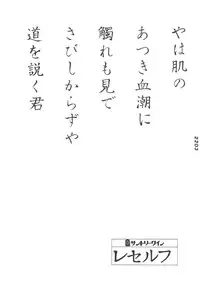 やは肌の
あつき血潮に
觸れも見で
さびしからずや
道を説く君
2202
サントリーワイン
レセルフ